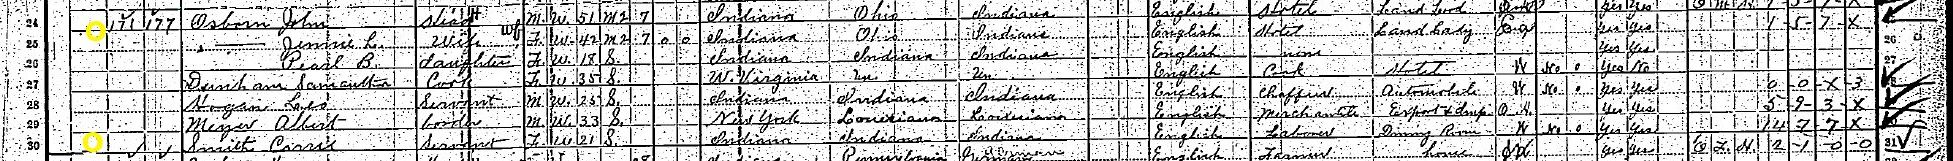 24 171 177 Osborn John Head M W 51 M2 7 Indiana Ohio Indiana English Hotel Land Lord Yes Yes
25 Jennie L. Wife F W 42 M2 7 0 0 Indiana Ohio Indiana English Hotel Land Lady Yes Yes 1-5-7-X
26 Pearl B. Daughter F W 18 S. Indiana Indiana Indiana English none Yes Yes
27 Dunham Samantha Cook F W 35 S. W. Virginia Un Un English Cook Hotel W No 0 Yes No
28 Hogan Leo Servant M W 25 S. Indiana Indiana Indiana English Chaffeur Automobile W No 0 Yes Yes 0-0-X-3
29 Meyer Albert boarder M W 33 S. New York Louisiana Louisiana English Merchantile Export & Imp O.A. Yes Yes 5-9-3-X
30 Smith Carrie Servant F W 21 S. Indiana Indiana Indiana English Laborer Dining Room W No 0 Yes Yes 14-7-7-X
Pennsylvania German English Farmer home Yes Yes 2-1-0-0